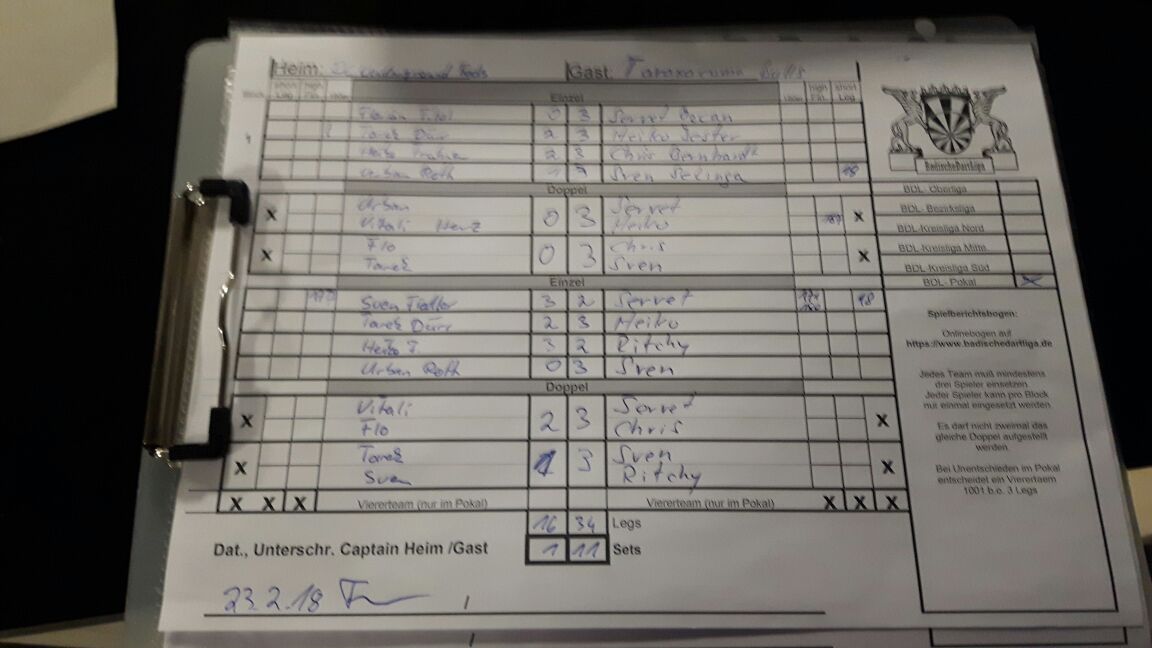 Heim: Underground
Gast: Bulls
short Leg high Fin. high Fin. short Leg
Einzel
0 3 Servet Becan
Tarek Dürr 2 3 Heiko Sester
Heiko 2 3 Chris Bernhardt
Urban Roth 3 Sven Selinga 18
Doppel
X Urban 0 3 Servet X
Vitali Heiko
X Flo 0 3 Chris X
Tarek Sven
Einzel
Sven Fiedler 3 2 Servet 18
Tarek Dürr 2 3 Heiko
Heiko T. 3 2 Ritchy
Urban Roth 0 3 Sven
Doppel
X Vitali 2 3 Servet X
Flo Chris
X Tarek 1 3 Sven X
Sven Ritchy
X X X Viererteam (nur im Pokal) Viererteam (nur im Pokal) X X X
16 34 Legs
Dat., Unterschr. Captain Heim /Gast 1 11 Sets
23.2.18 /
BadischeDartLiga
BDL- Oberliga
BDL- Bezirksliga
BDL-Kreisliga Nord
BDL-Kreisliga Mitte
BDL-Kreisliga Süd
BDL- Pokal X
Spielberichtsbogen:
Onlinebogen auf
https://www.badischedartliga.de
Jedes Team muß mindestens
drei Spieler einsetzen.
Jeder Spieler kann pro Block
nur einmal eingesetzt werden.
Es darf nicht zweimal das
gleiche Doppel aufgestellt
werden.
Bei Unentschieden im Pokal
entscheidet ein Viererteam
1001 b.e. 3 Legs